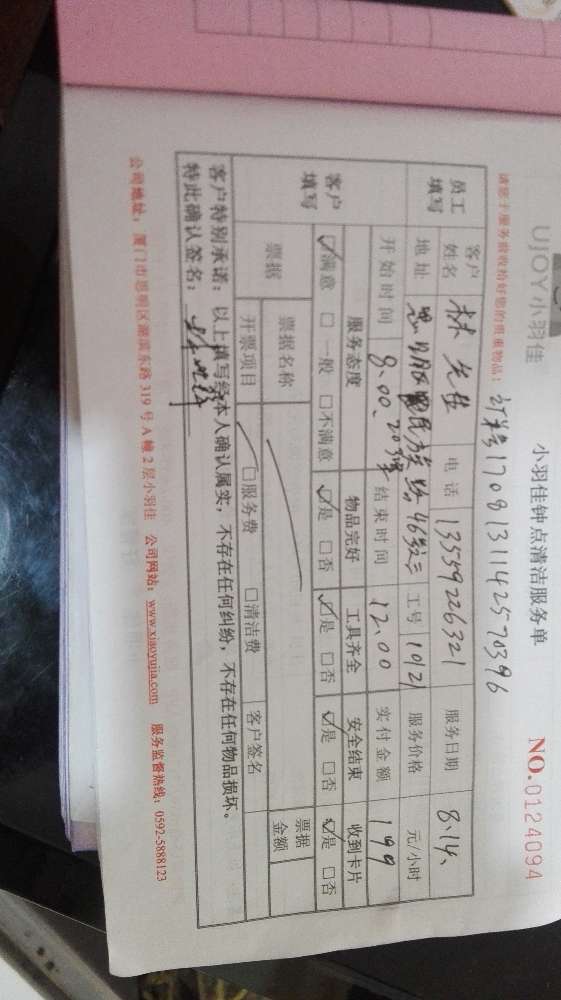 UJOY小羽佳
小羽佳钟点清洁服务单
NO.0124094
请您于服务前收拾好您的贵重物品： 订单号17081311425570396
员工填写 客户姓名 林先生 电话 13559226321 服务日期 8.14、
地址 思明区 民族路46号 工号 1021 服务价格 元/小时
开始时间 8、00、 结束时间 12、00 实付金额 199
客户填写 服务态度 物品完好 工具齐全 安全结束 收到卡片
☑满意 □一般 □不满意 ☑是 □否 ☑是 □否 ☑是 □否 ☑是 □否
票据 票据名称 票据金额
开票项目 □服务费 □清洁费 客户签名
客户特别承诺：以上填写经本人确认属实，不存在任何纠纷，不存在任何物品损坏。
特此确认签名：
公司地址：厦门市思明区湖滨东路319号A幢2层小羽佳 公司网站：www.xiaoyujia.com 服务监督热线：0592-5888123